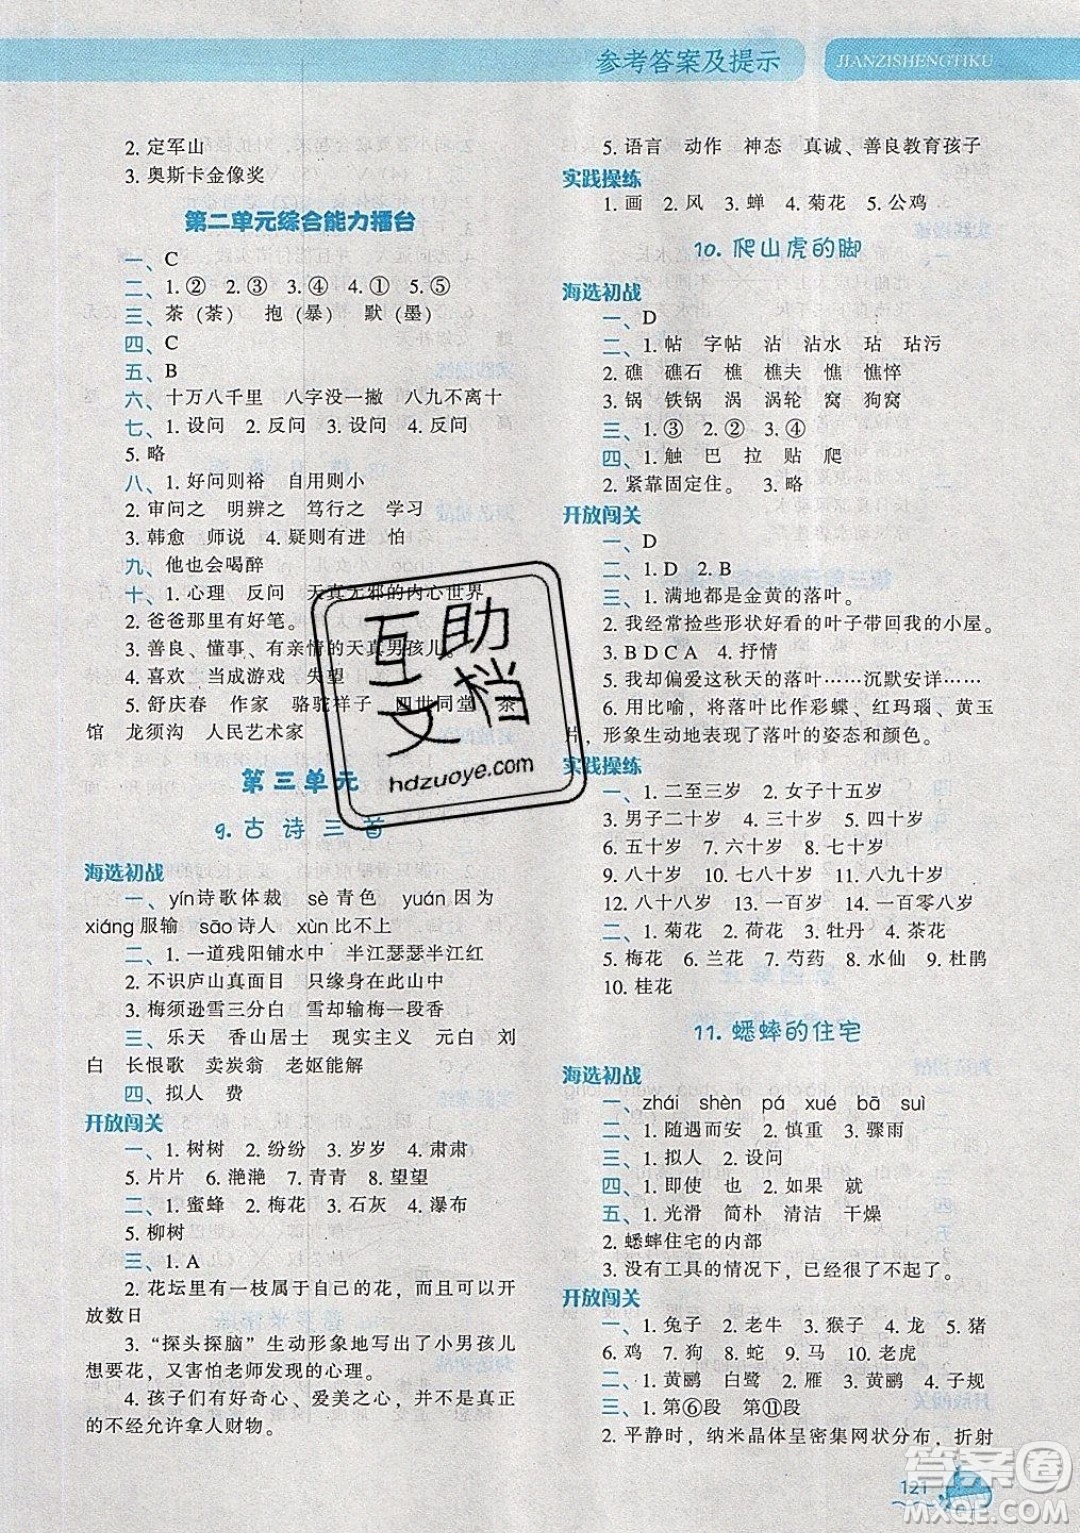 参考答案及提示
JIANZISHENGTIKU
2. 定军山
3. 奥斯卡金像奖
第二单元综合能力擂台
一、C
二、1.② 2.③ 3.④ 4.① 5.⑤
三、茶(荼) 抱(暴) 默(墨)
四、C
五、B
六、十万八千里 八字没一撇 八九不离十
七、1. 设问 2. 反问 3. 设问 4. 反问
5. 略
八、1. 好问则裕 自用则小
2. 审问之 明辨之 笃行之 学习
3. 韩愈 师说 4. 疑则有进 怕
九、他也会喝醉
十、1. 心理 反问 天真无邪的内心世界
2. 爸爸那里有好笔。
3. 善良、懂事、有亲情的天真男孩儿。
4. 喜欢 当成游戏 失望
5. 舒庆春 作家 骆驼祥子 四世同堂 茶
馆 龙须沟 人民艺术家
第三单元
9. 古诗三首
海选初战
一、yín诗歌体裁 sè青色 yuán因为
xiáng服输 sāo诗人 xùn比不上
二、1. 一道残阳铺水中 半江瑟瑟半江红
2. 不识庐山真面目 只缘身在此山中
3. 梅须逊雪三分白 雪却输梅一段香
三、乐天 香山居士 现实主义 元白 刘
白 长恨歌 卖炭翁 老妪能解
四、拟人 费
开放闯关
一、1. 树树 2. 纷纷 3. 岁岁 4. 肃肃
5. 片片 6. 滟滟 7. 青青 8. 望望
二、1. 蜜蜂 2. 梅花 3. 石灰 4. 瀑布
5. 柳树
三、1. A
2. 花坛里有一枝属于自己的花，而且可以开
放数日
3. “探头探脑”生动形象地写出了小男孩儿
想要花，又害怕老师发现的心理。
4. 孩子们有好奇心、爱美之心，并不是真正
的不经允许拿人财物。
5. 语言 动作 神态 真诚、善良教育孩子
实践操练
1. 画 2. 风 3. 蝉 4. 菊花 5. 公鸡
10. 爬山虎的脚
海选初战
一、D
二、1. 帖 字帖 沾 沾水 玷 玷污
2. 礁 礁石 樵 樵夫 憔 憔悴
3. 锅 铁锅 涡 涡轮 窝 狗窝
三、1.③ 2.② 3.④
四、1. 触 巴 拉 贴 爬
2. 紧靠固定住。 3. 略
开放闯关
一、D
二、1. D 2. B
三、1. 满地都是金黄的落叶。
2. 我经常捡些形状好看的叶子带回我的小屋。
3. B D C A 4. 抒情
5. 我却偏爱这秋天的落叶……沉默安详……
6. 用比喻，将落叶比作彩蝶、红玛瑙、黄玉
片，形象生动地表现了落叶的姿态和颜色。
实践操练
一、1. 二至三岁 2. 女子十五岁
3. 男子二十岁 4. 三十岁 5. 四十岁
6. 五十岁 7. 六十岁 8. 七十岁
9. 八十岁 10. 七八十岁 11. 八九十岁
12. 八十八岁 13. 一百岁 14. 一百零八岁
二、1. 菊花 2. 荷花 3. 牡丹 4. 茶花
5. 梅花 6. 兰花 7. 芍药 8. 水仙 9. 杜鹃
10. 桂花
11. 蟋蟀的住宅
海选初战
一、zhái shèn pá xué bā suì
二、1. 随遇而安 2. 慎重 3. 骤雨
三、1. 拟人 2. 设问
四、1. 即使 也 2. 如果 就
五、1. 光滑 简朴 清洁 干燥
2. 蟋蟀住宅的内部
3. 没有工具的情况下，已经很了不起了。
开放闯关
一、1. 兔子 2. 老牛 3. 猴子 4. 龙 5. 猪
6. 鸡 7. 狗 8. 蛇 9. 马 10. 老虎
二、1. 黄鹂 白鹭 2. 雁 3. 黄鹂 4. 子规
三、1. 第⑥段 第⑪段
2. 平静时，纳米晶体呈密集网状分布，折射
121
互助文档
hdzuoye.com
答案圈
MXQE.COM